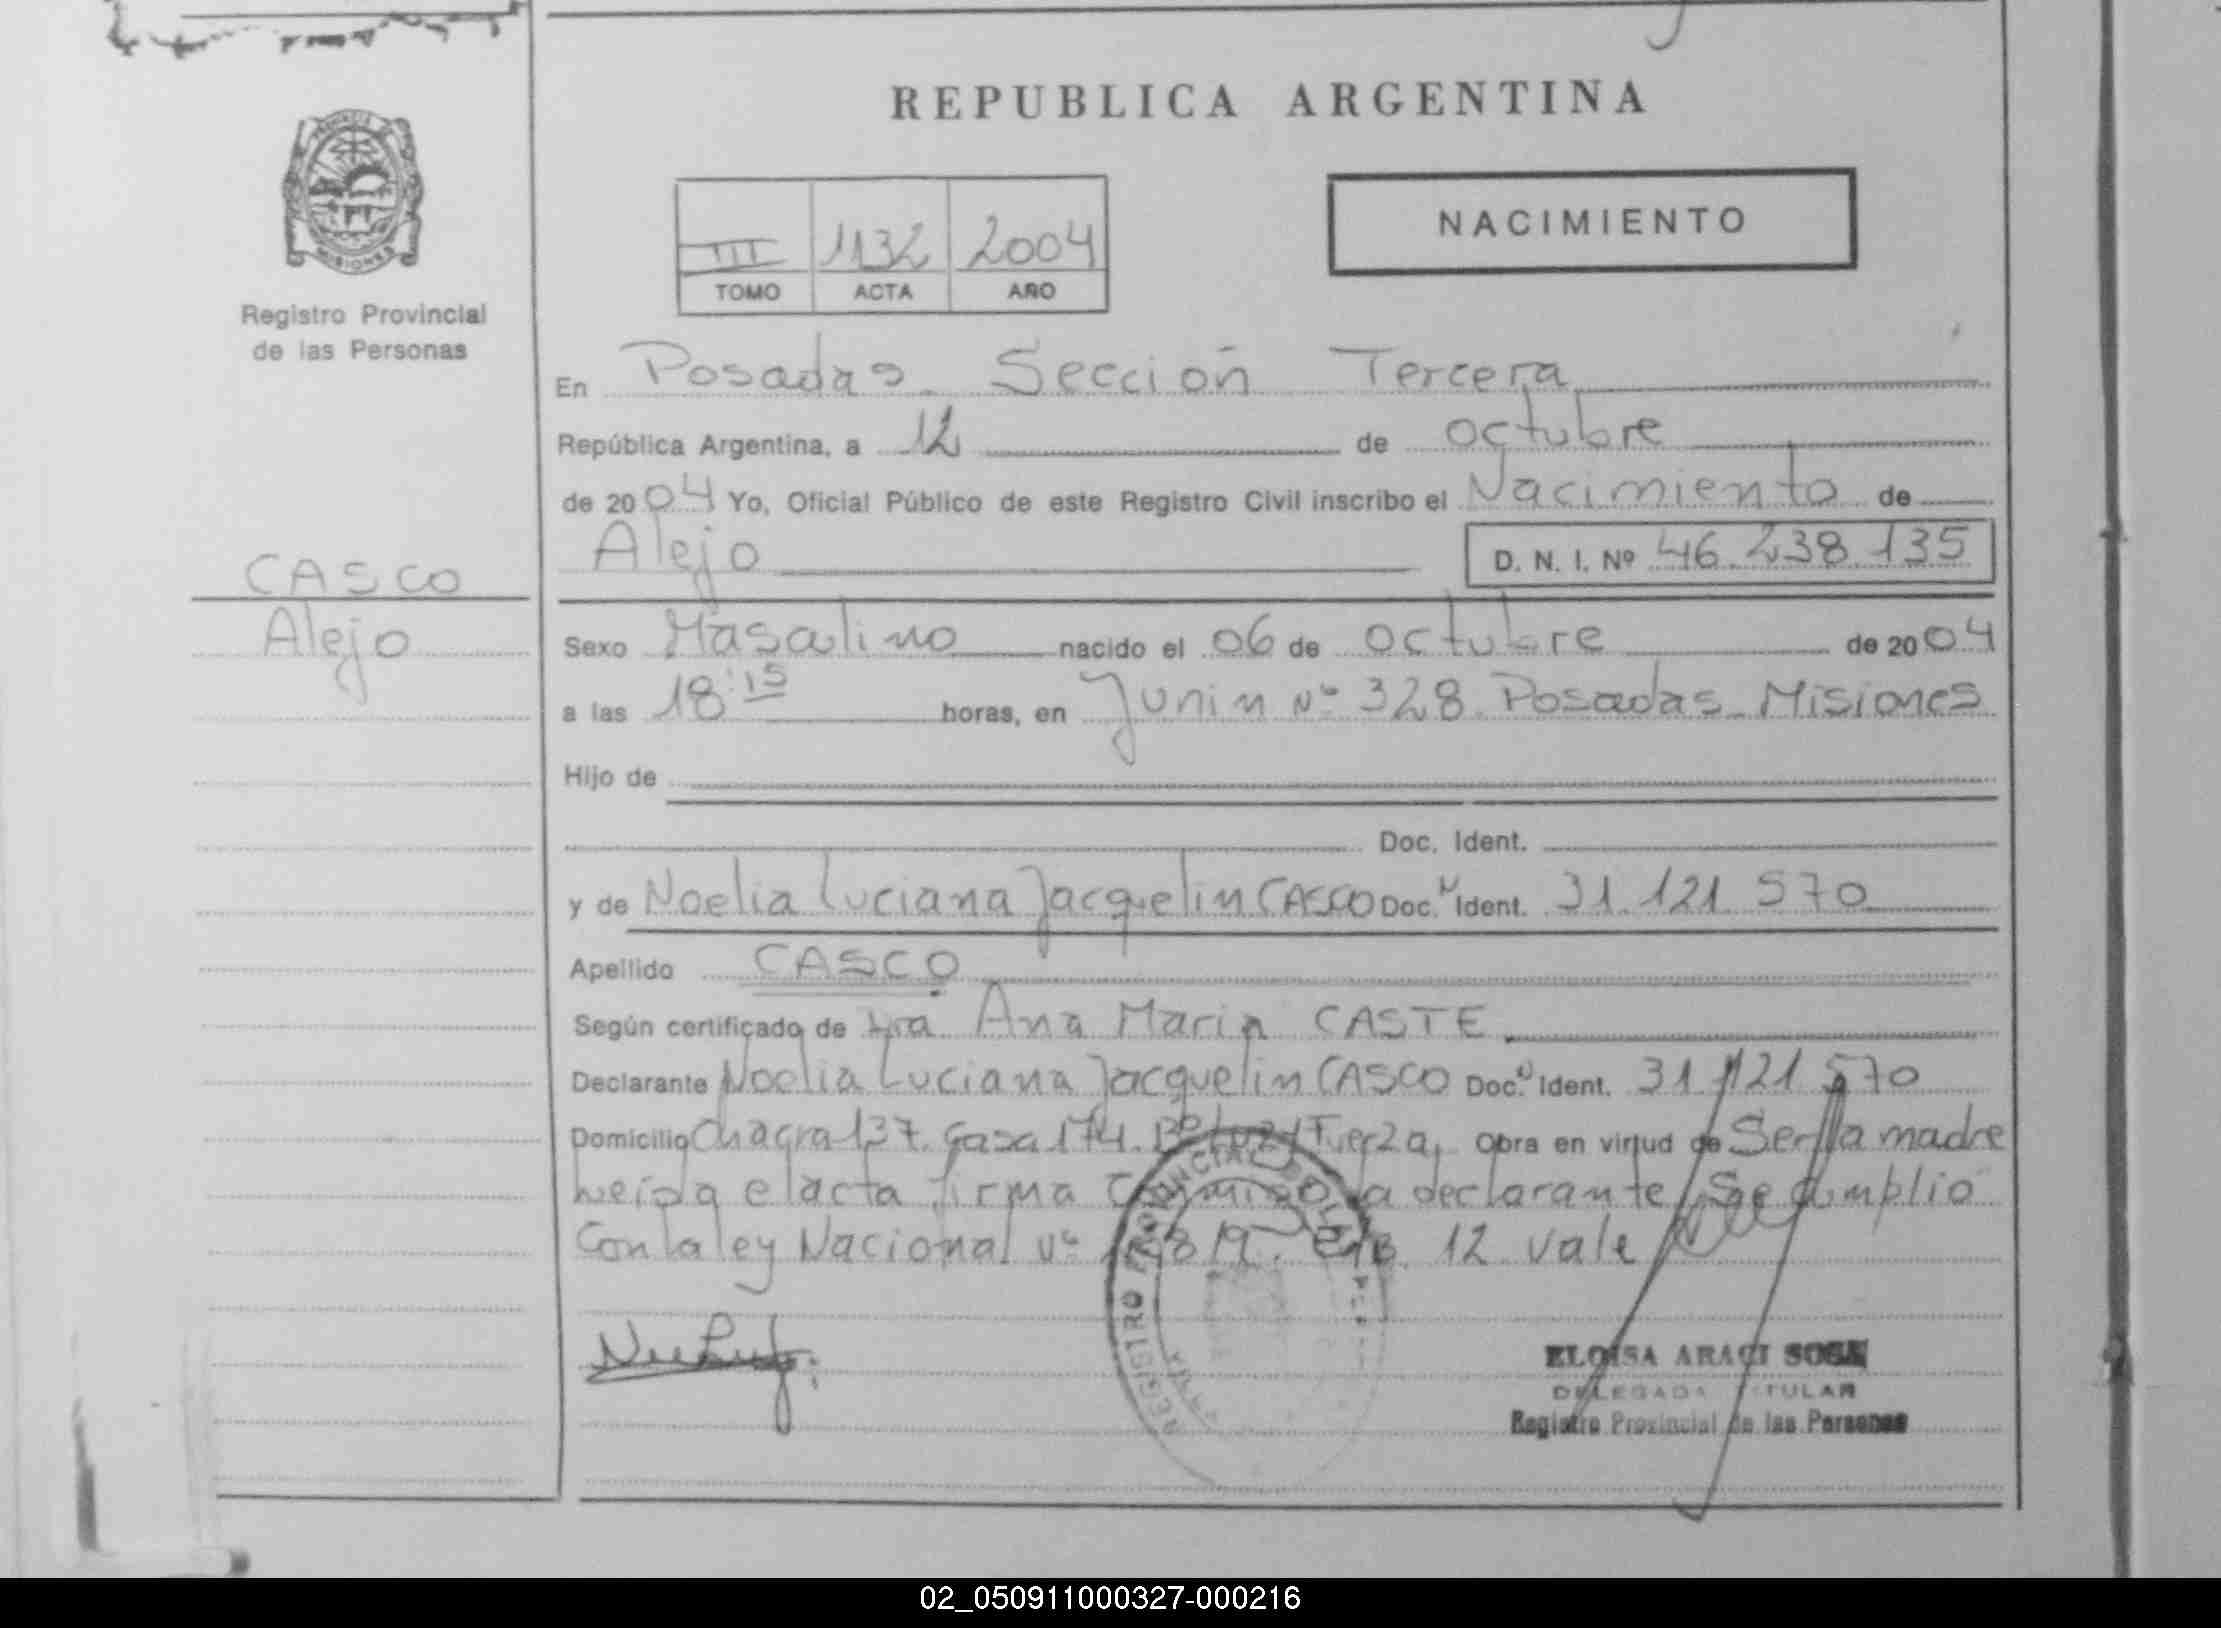 REPUBLICA ARGENTINA
PROVINCIA DE
MISIONES
Registro Provincial
de las Personas
NACIMIENTO
III 1132 2004
TOMO ACTA AÑO
En Posadas Sección Tercera
República Argentina, a 12 de octubre
de 2004 Yo, Oficial Público de este Registro Civil inscribo el Nacimiento de
Alejo D. N. I. Nº 46.238.135
CASCO
Alejo
Sexo Masculino nacido el 06 de octubre de 2004
a las 18:15 horas, en Junin Nº 328 Posadas Misiones
Hijo de
Doc. Ident.
y de Noelia Luciana Jacquelin CASCO Doc. Ident. 31.121.570
Apellido CASCO
Según certificado de Dra Ana Maria CASTE
Declarante Noelia Luciana Jacquelin CASCO Doc. Ident. 31.121.570
Domicilio Chacra 137. Casa 174. Fuerza, Obra en virtud de Ser la madre
leída el acta firma conmigo la declarante Se cumplio
Con la ley Nacional Nº 12 vale
REGISTRO PROVINCIAL DE LAS
ELOISA ARACI SOSA
DELEGADA TITULAR
Registro Provincial de las Personas
02_050911000327-000216